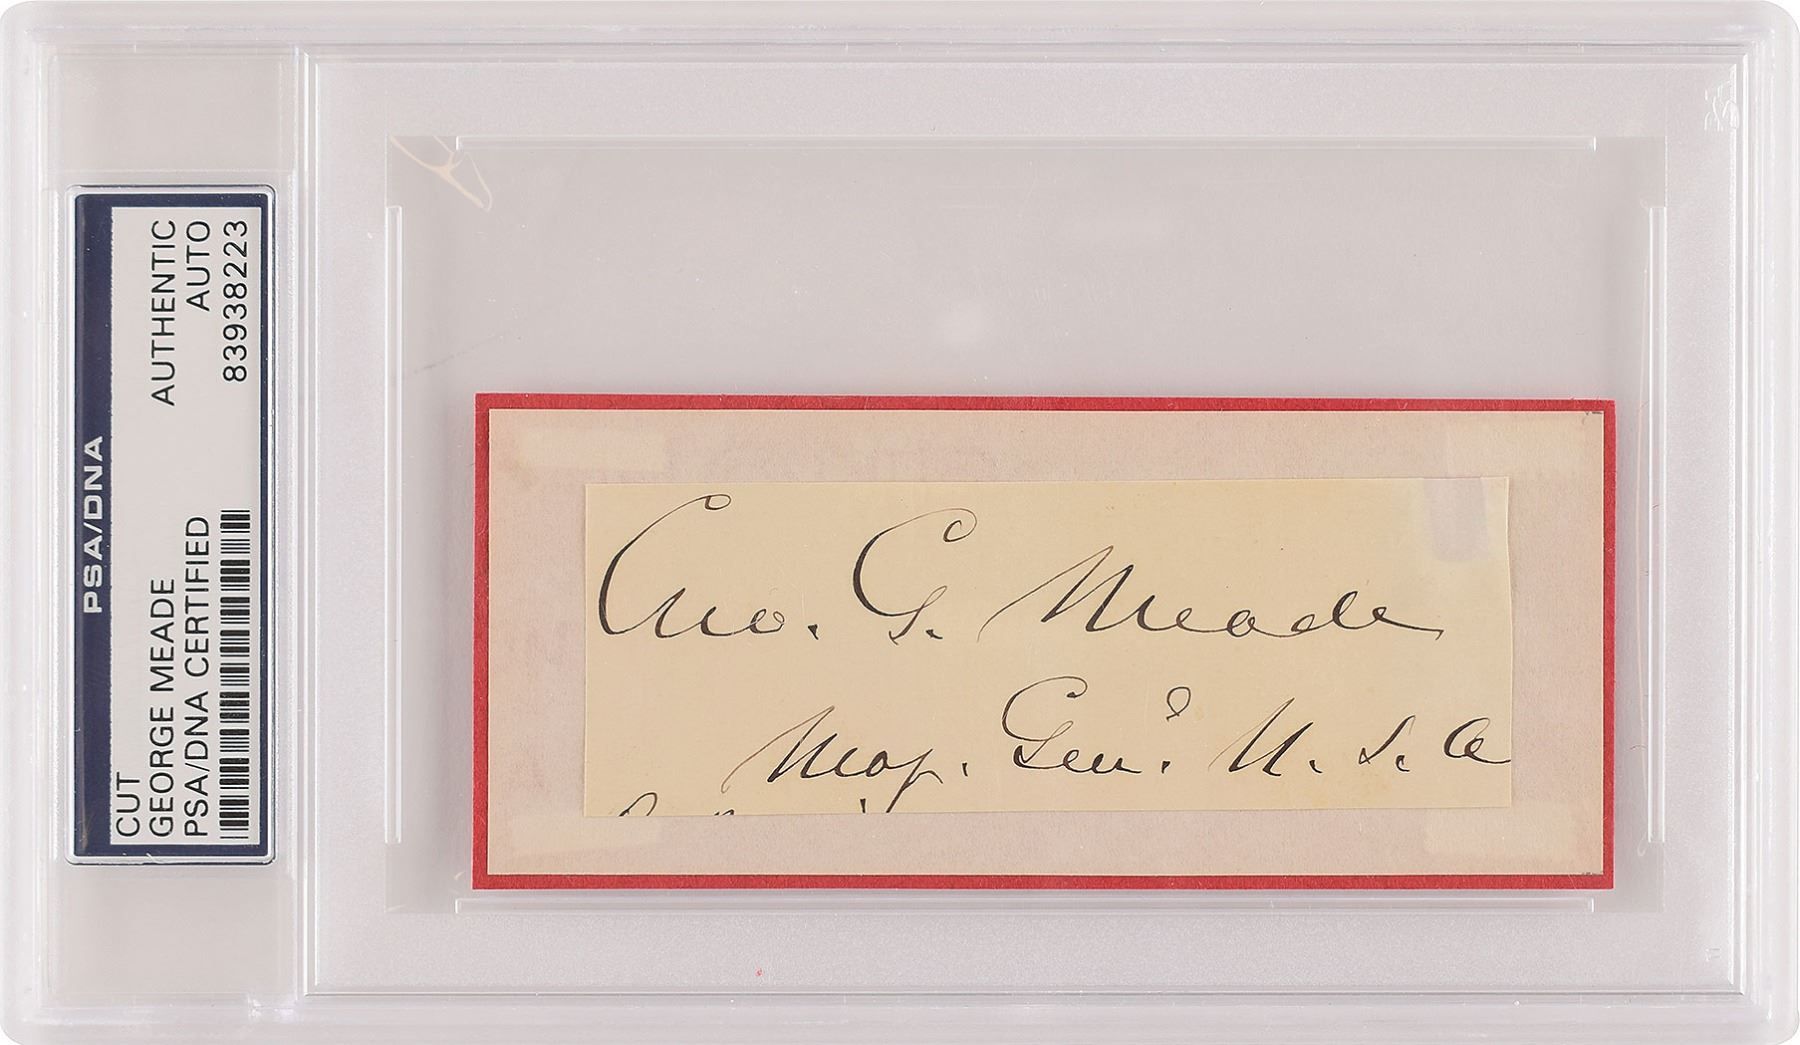 PSA/DNA
CUT
GEORGE MEADE AUTHENTIC
PSA/DNA CERTIFIED AUTO
83938223
Geo. G. Meade
Maj. Genl. U. S. A